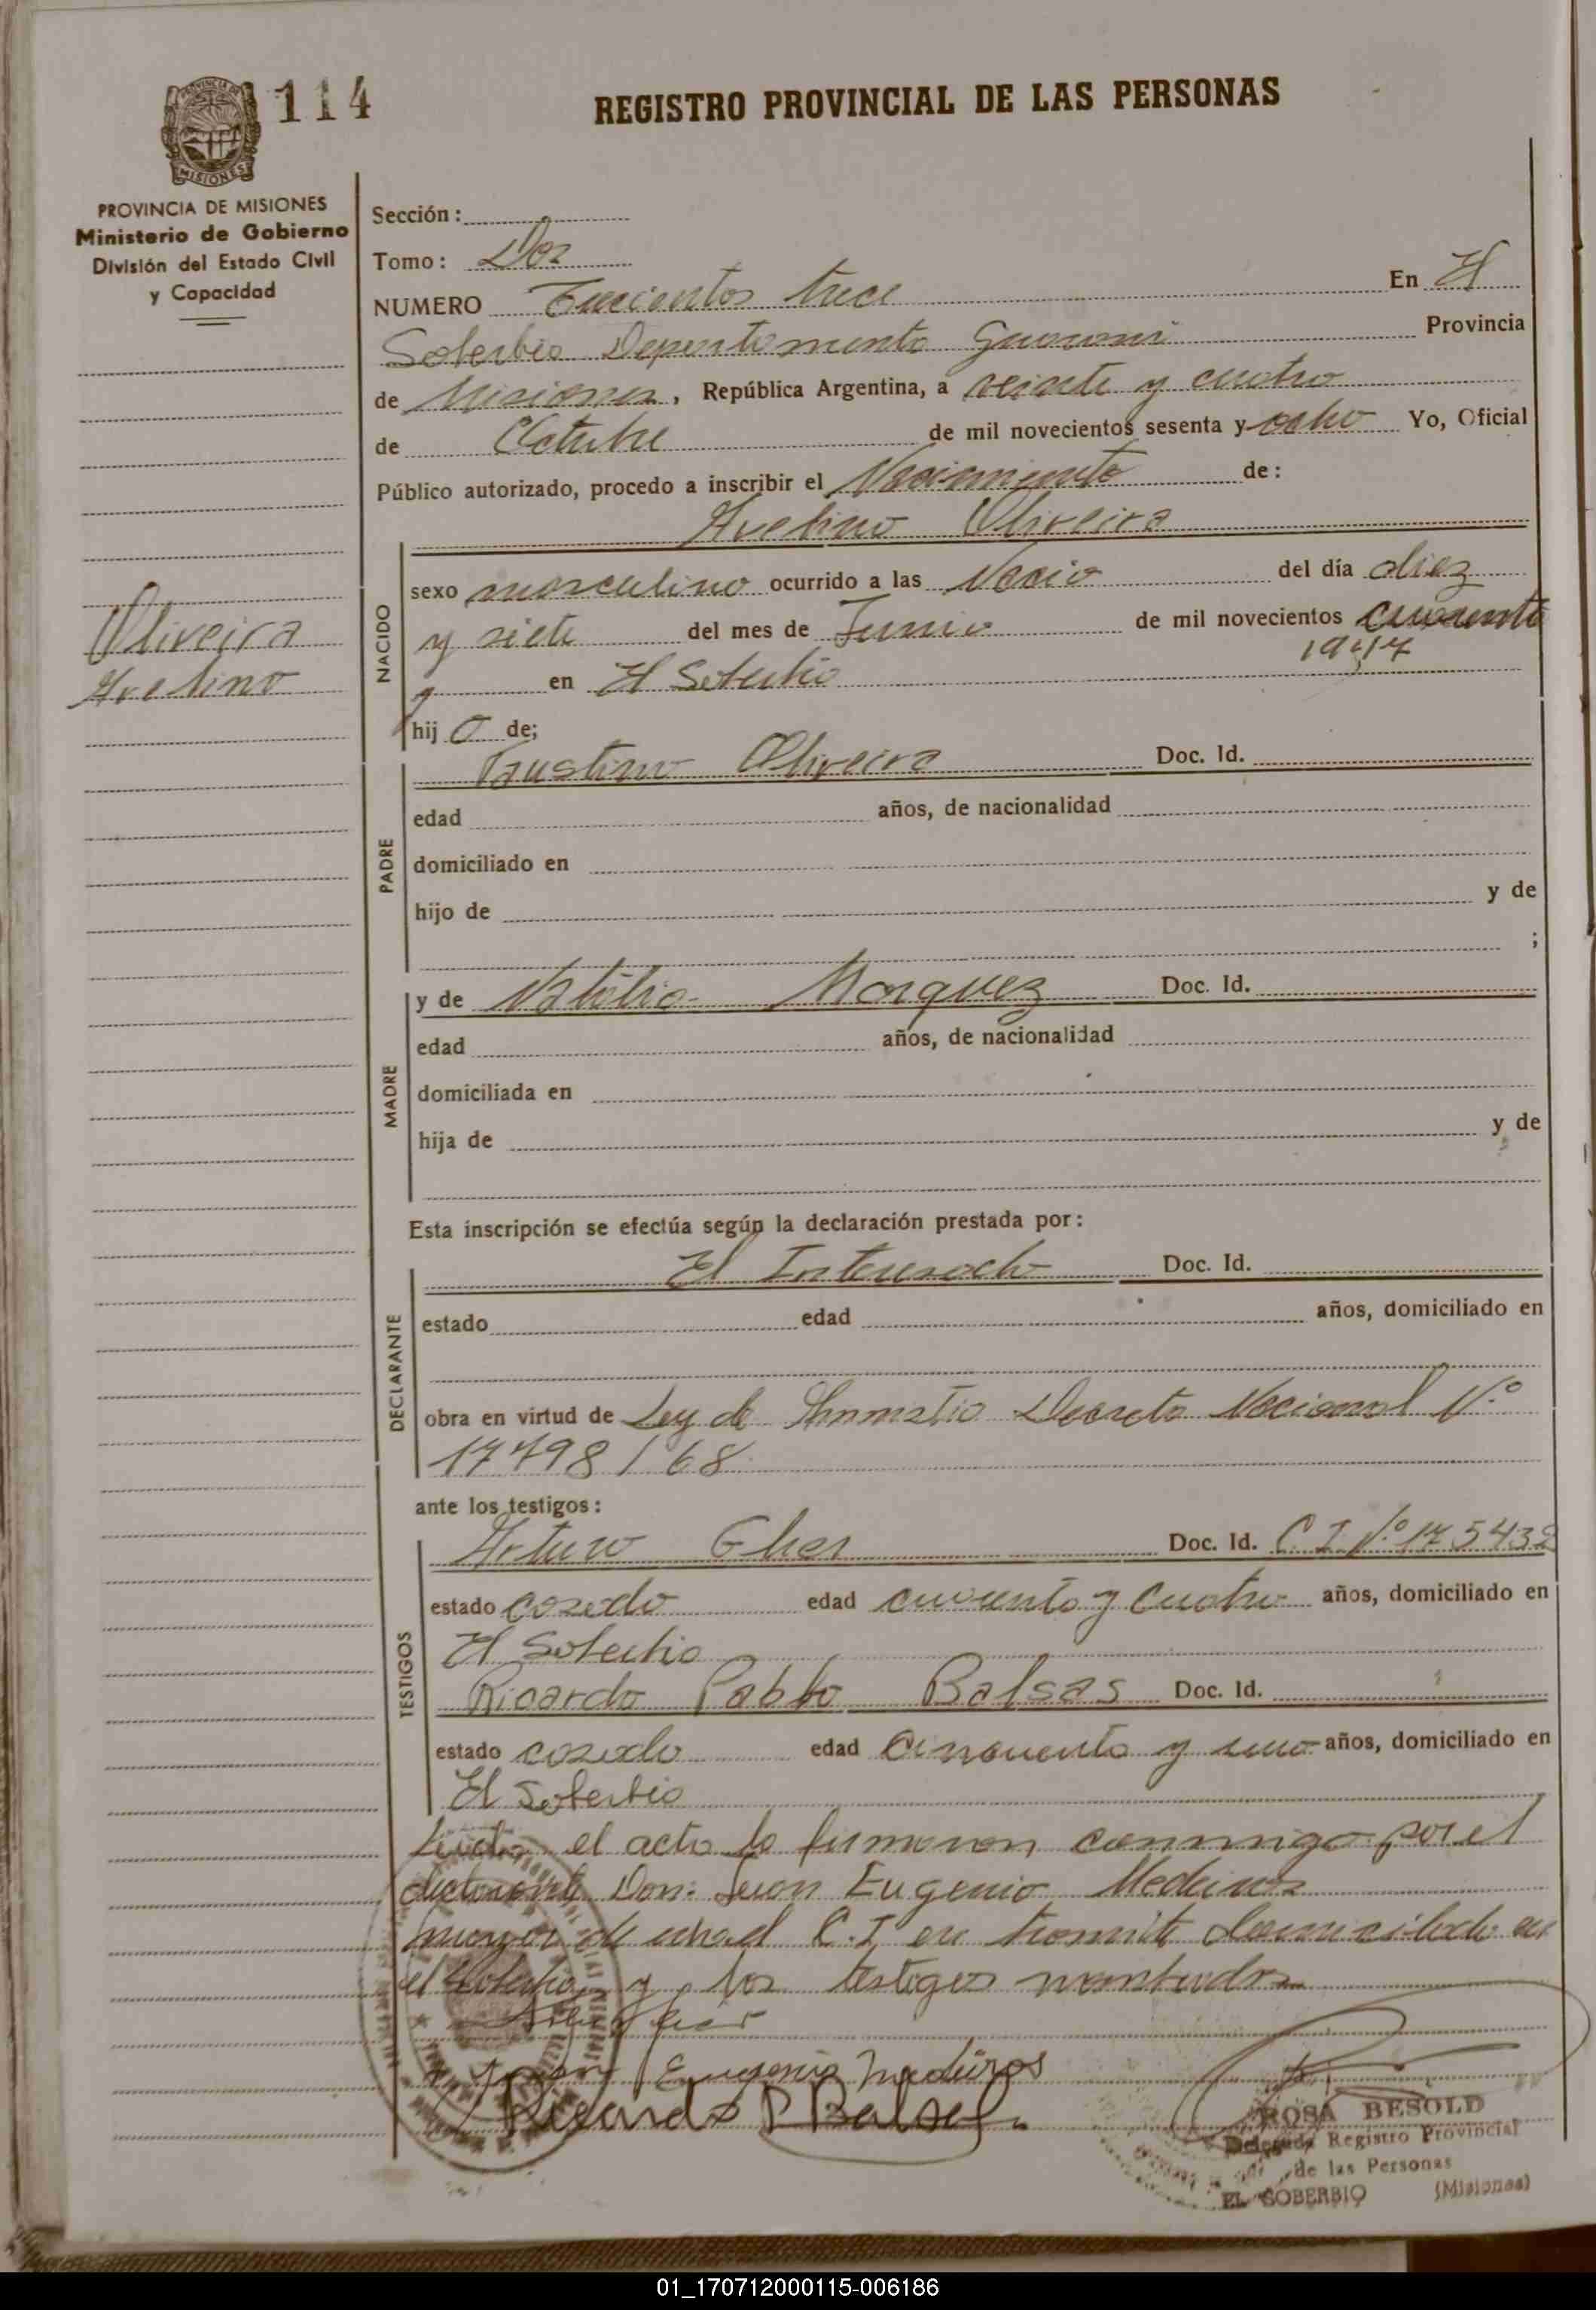 114
REGISTRO PROVINCIAL DE LAS PERSONAS
MISIONES
PROVINCIA DE MISIONES
Ministerio de Gobierno
División del Estado Civil
y Capacidad
Sección:
Tomo: Dos
NUMERO Trescientos trece En El
Soberbio Departamento Guarani Provincia
de Misiones, República Argentina, a veinte y cuatro
de Octubre de mil novecientos sesenta y ocho Yo, Oficial
Público autorizado, procedo a inscribir el Nacimiento de:
Avelino Oliveira
Oliveira
Avelino
NACIDO
sexo masculino ocurrido a las Nacio del día diez
y siete del mes de Junio de mil novecientos cuarenta
1947
y en El Soberbio
hij o de;
PADRE
Faustino Oliveira Doc. Id.
edad años, de nacionalidad
domiciliado en
hijo de y de
;
MADRE
y de Natalia Marquez Doc. Id.
edad años, de nacionalidad
domiciliada en
hija de y de
Esta inscripción se efectúa según la declaración prestada por:
DECLARANTE
El Interesado Doc. Id.
estado edad años, domiciliado en
obra en virtud de Ley de Decreto Nacional Nº
17498/68
ante los testigos:
TESTIGOS
Arturo Doc. Id. C I Nº 175432
estado casado edad cuarenta y cuatro años, domiciliado en
El Soberbio
Ricardo Pablo Balsas Doc. Id.
estado casado edad cincuenta y uno años, domiciliado en
El Soberbio
Leida el acta la firmaron conmigo por el
declarante Don: Juan Eugenio Medeiros
mayor de edad C.I en tramite domiciliado en
el Soberbio y los testigos nombrados
Juan Eugenio
Ricardo P Balsas
ROSA BESOLD
Delegada Registro Provincial
de las Personas
EL SOBERBIO (Misiones)
01_170712000115-006186